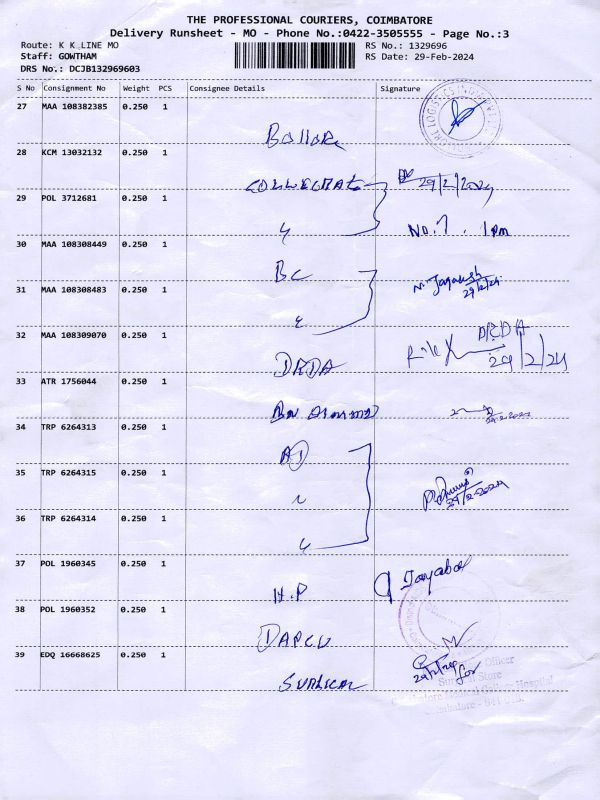 THE PROFESSIONAL COURIERS, COIMBATORE
Delivery Runsheet - MO - Phone No.:0422-3505555 - Page No.:3
Route: K K LINE MO
Staff: GOWTHAM
DRS No.: DCJB132969603
RS No.: 1329696
RS Date: 29-Feb-2024
S No Consignment No Weight PCS Consignee Details Signature
27 MAA 108382385 0.250 1
28 KCM 13032132 0.250 1
COLLECTRATE 29/2/2024
29 POL 3712681 0.250 1
No.7. 1pm
30 MAA 108308449 0.250 1
BC
29/2/24
31 MAA 108308483 0.250 1
32 MAA 108309070 0.250 1
DRDA
DRDA
29/2/24
33 ATR 1756044 0.250 1
29.2.2024
34 TRP 6264313 0.250 1
AD
35 TRP 6264315 0.250 1
29/2-2024
36 TRP 6264314 0.250 1
37 POL 1960345 0.250 1
H.P
38 POL 1960352 0.250 1
DAPCU
39 EDQ 16668625 0.250 1
SURGICAL
29/2/24 for
Officer
Store
Hospital